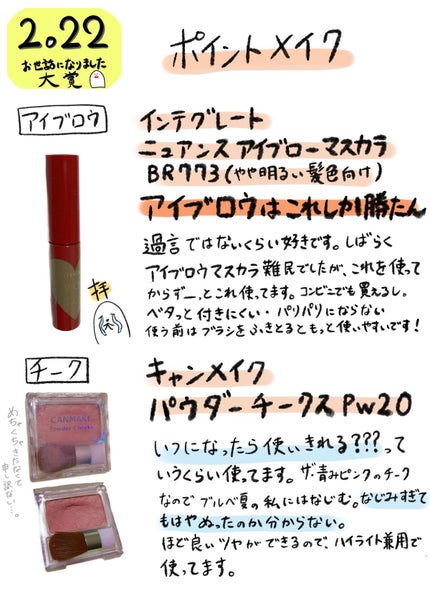 2022
お世話になりました
大賞
ポイントメイク
アイブロウ
インテグレート
ニュアンスアイブローマスカラ
BR773(やや明るい髪色向け)
アイブロウはこれしか勝たん
過言ではないくらい好きです。しばらく
アイブロウマスカラ難民でしたが、これを使って
からずーっとこれ使ってます。コンビニでも買えるし。
ベタっと付きにくい・パリパリにならない
使う前はブラシをふきとるともっと使いやすいです!
拝
チーク
キャンメイク
パウダーチークス PW20
いつになったら使いきれる???って
いうくらい使ってます。ザ・青みピンクのチーク
なのでブルベ夏の私にはなじむ。なじみすぎて
もはやぬったのか分からない。
ほど良いツヤができるので、ハイライト兼用で
使ってます。
めちゃくちゃきたなくて
申し訳ない…。
CANMAKE
Powder Cheeks